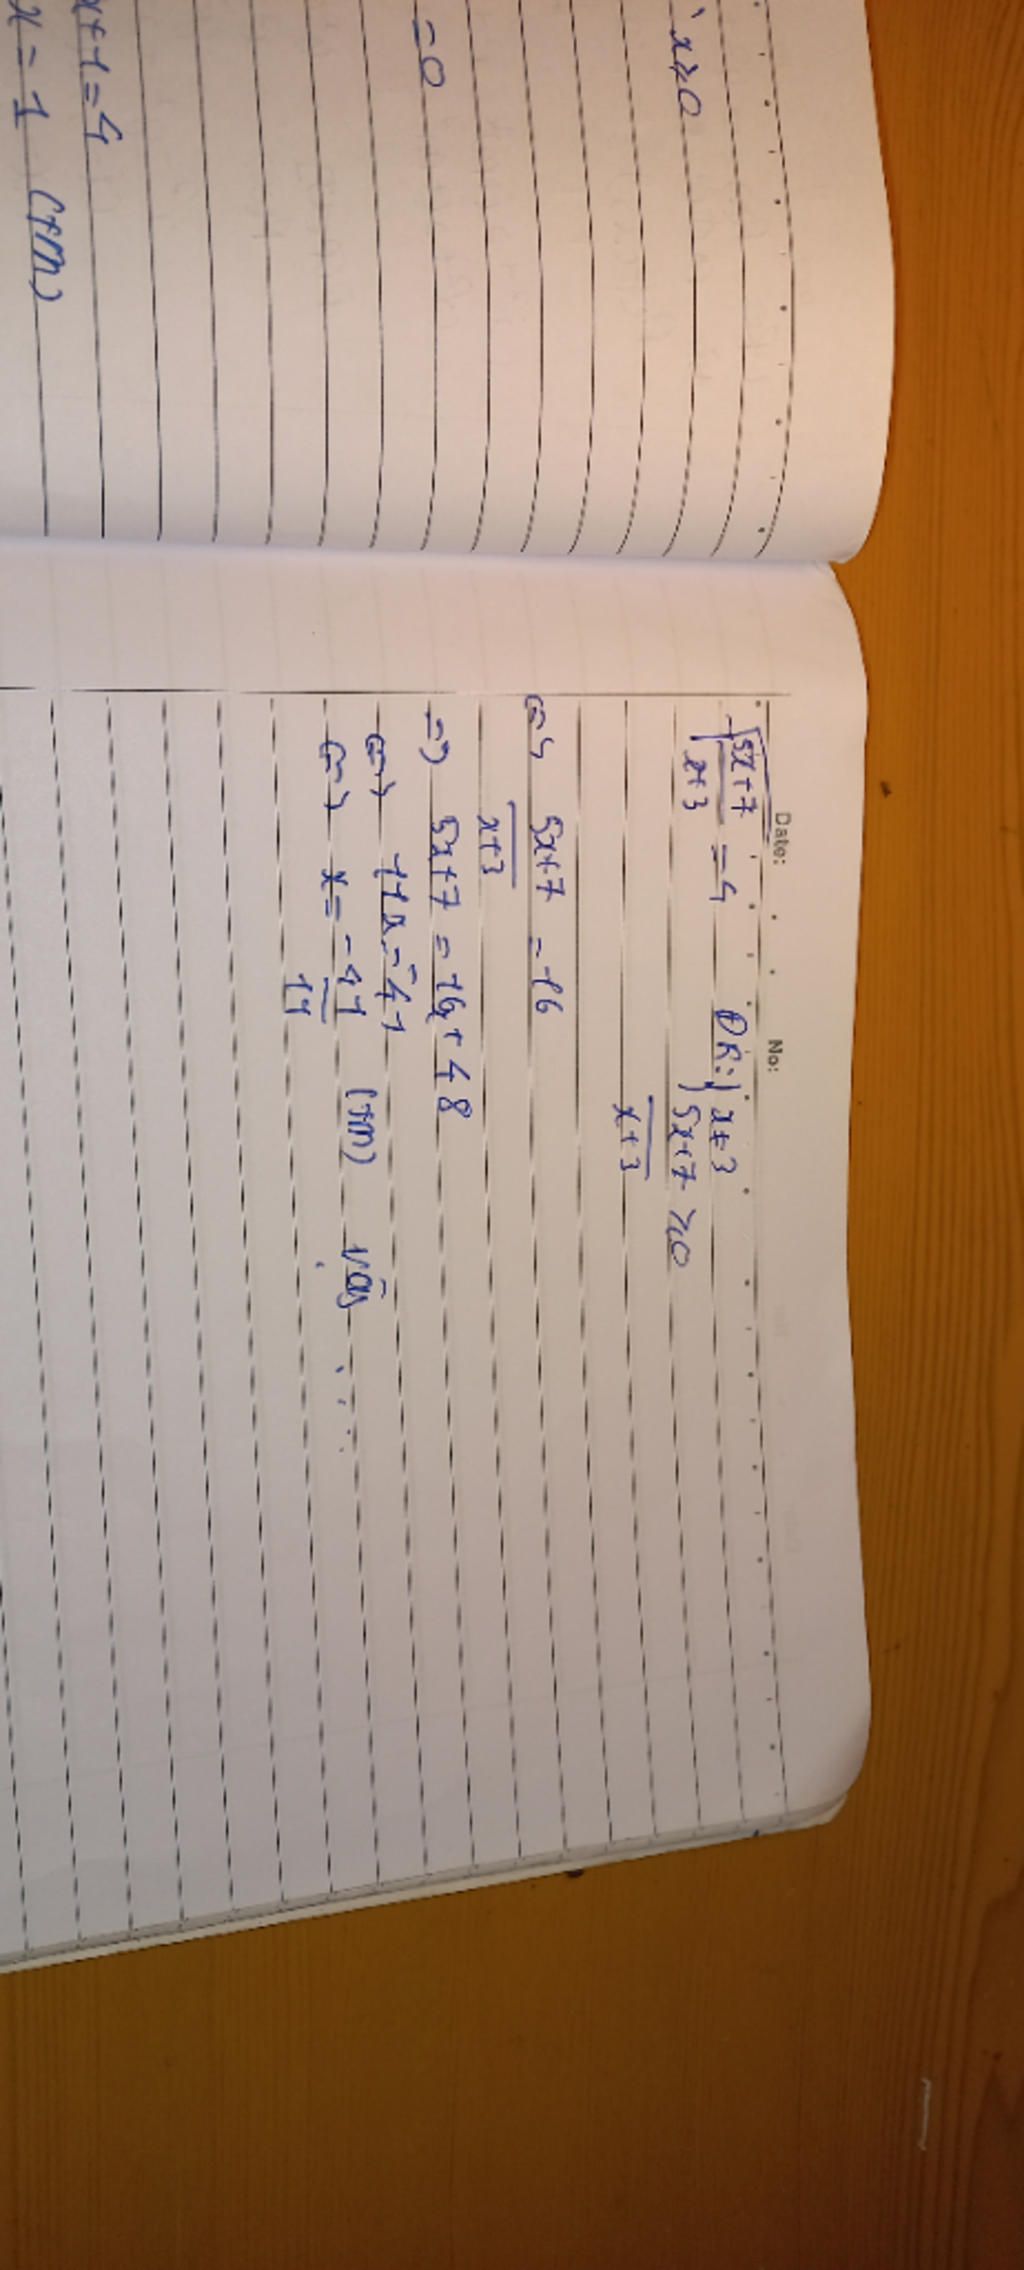 x⩾0
=0
x+1=4
x=1 (tm)
Date: No:
√(5x+7/x+3) =4 ĐK: { x≠3
5x+7/x+3 ⩾0
<=> 5x+7/x+3 =16
=> 5x+7 =16x+48
<=> 11x=-41
<=> x= -41/11 (tm) vậy ...